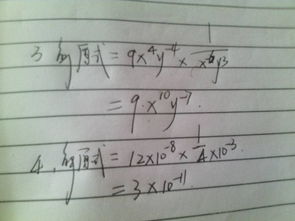 3 解原式 = 9x⁴y⁻⁴ × 1/(x⁻⁶y³)
= 9·x¹⁰y⁻⁷.
4.解原式 = 12×10⁻⁸ × 1/4 ×10⁻³.
= 3×10⁻¹¹